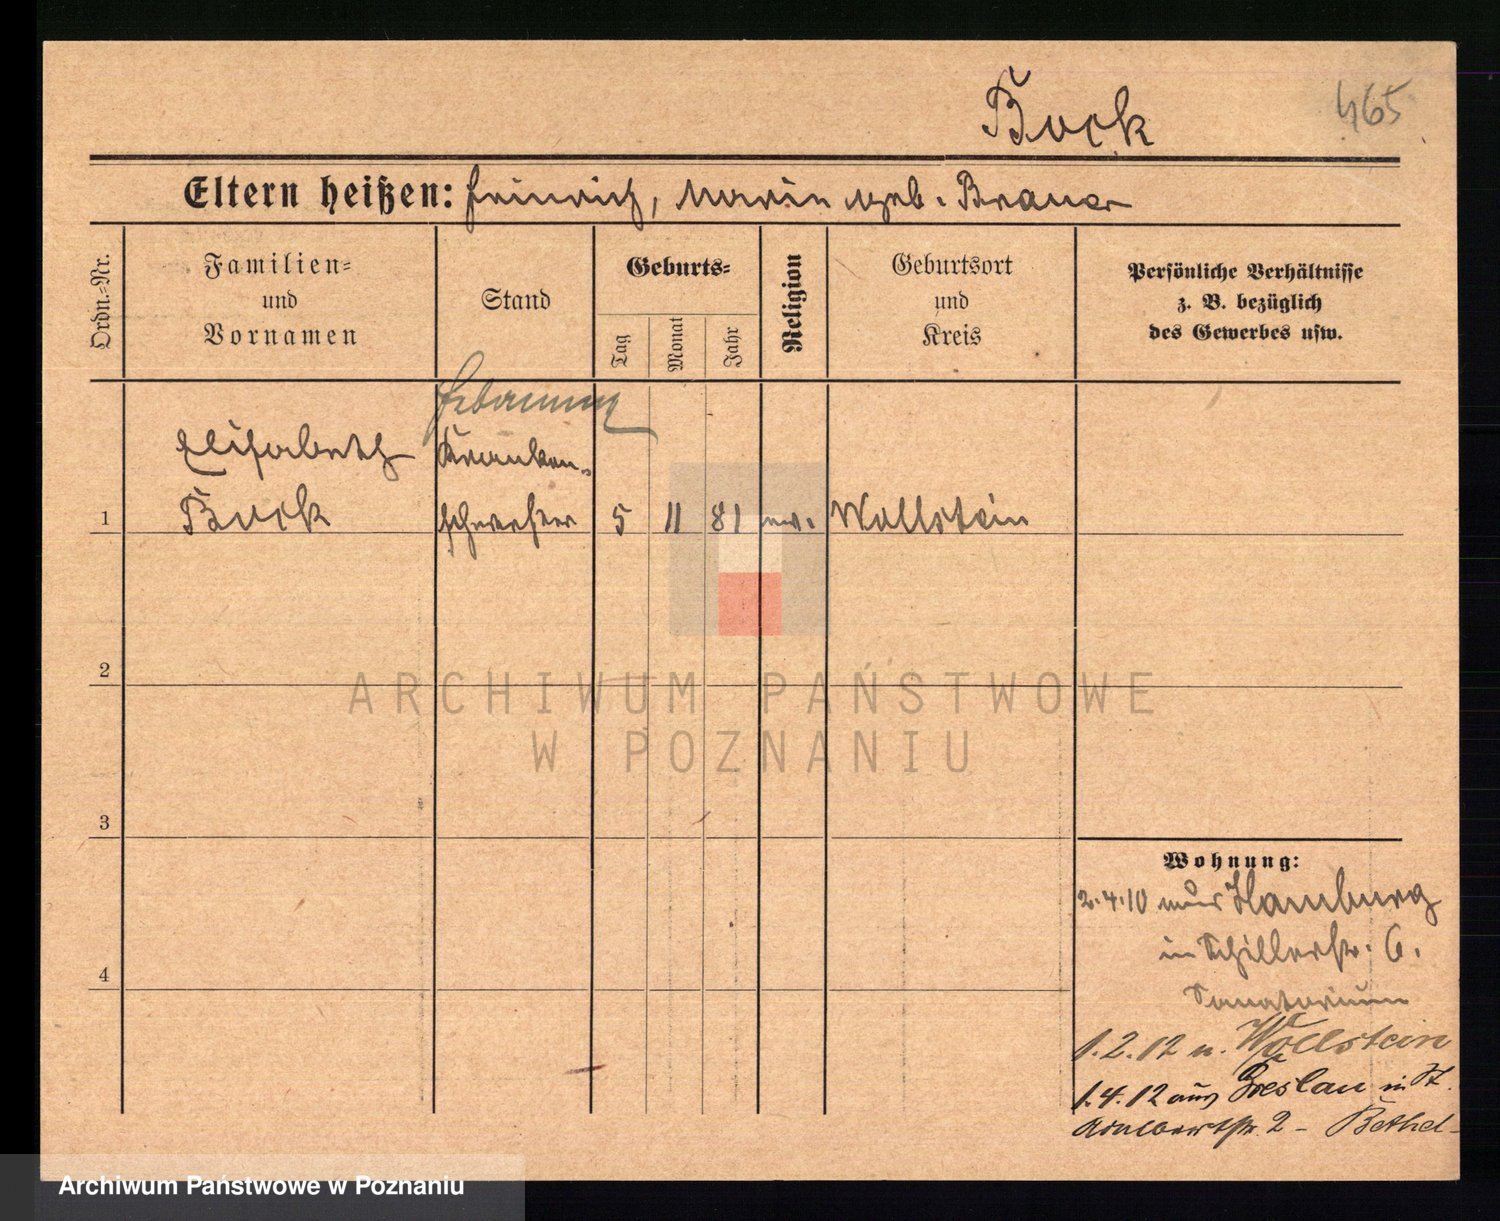 Bock 465
Eltern heißen: Heinrich, Marie geb. Brauer
Ordn.-Nr.
Familien-
und
Vornamen
Stand
Geburts-
Tag
Monat
Jahr
Religion
Geburtsort
und
Kreis
Persönliche Verhältnisse
z. B. bezüglich
des Gewerbes usw.
Hebamme
Elisabeth Kranken-
1 Bock schwester 5 11 81 ev. Wollstein
2
ARCHIWUM PAŃSTWOWE
W POZNANIU
3
Wohnung:
2.4.10 aus Hamburg
in Schillerstr. 6.
4
Sanatorium
1.2.12 n. Wollstein
1.4.12 aus Breslau in St.
Adalbertstr. 2 - Bethel-
Archiwum Państwowe w Poznaniu